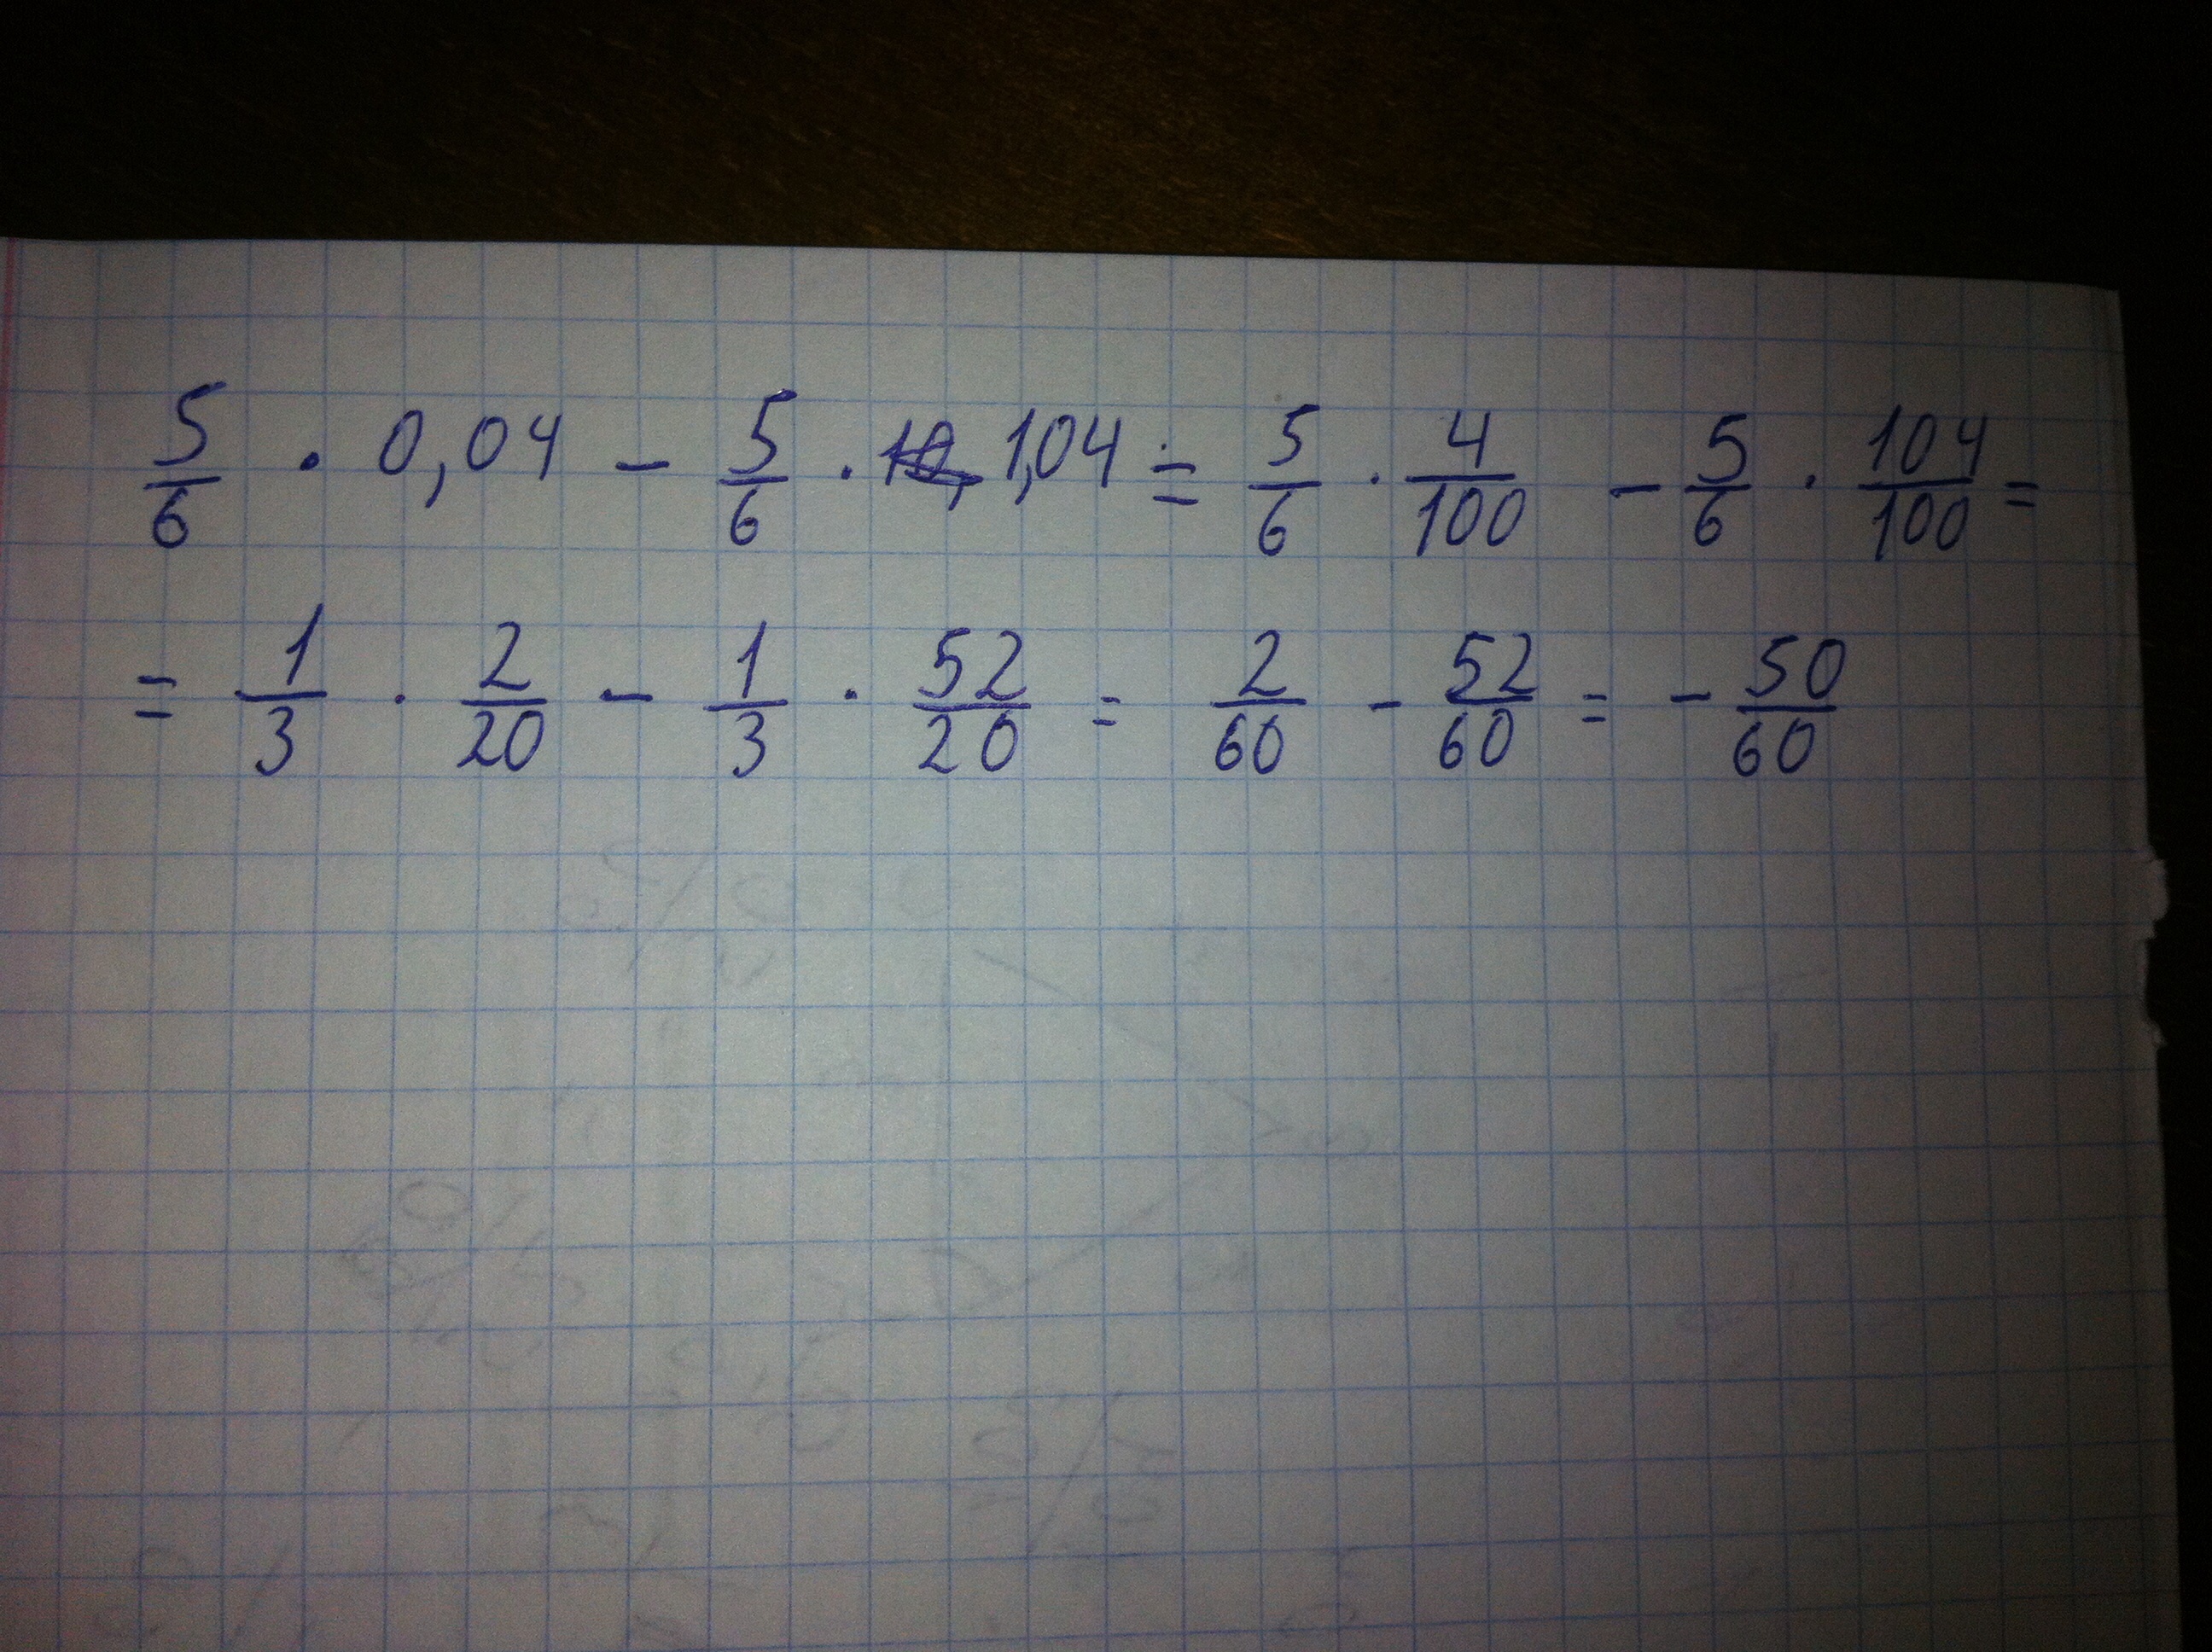 5/6 · 0,04 - 5/6 · 1,04 = 5/6 · 4/100 - 5/6 · 104/100 =
= 1/3 · 2/20 - 1/3 · 52/20 = 2/60 - 52/60 = - 50/60